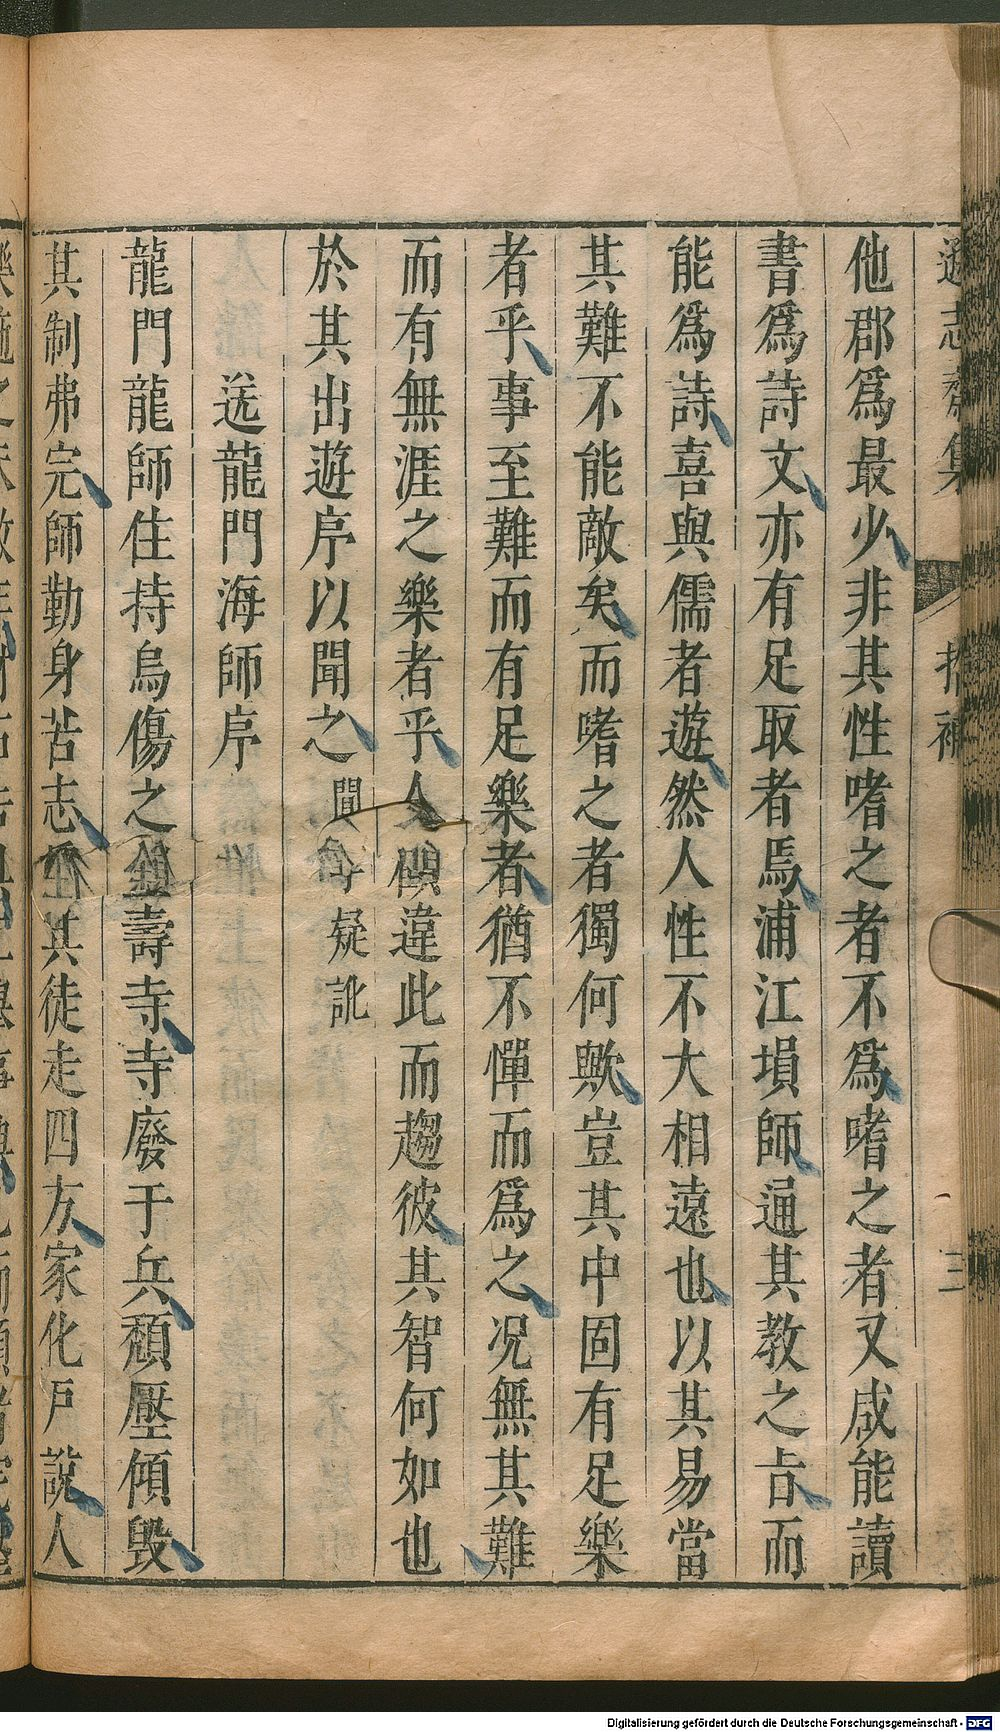 遜志齋集 拾補 三
他郡爲最少非其性嗜之者不爲嗜之者又咸能讀
書爲詩文亦有足取者焉浦江塤師通其教之㫖而
能爲詩喜與儒者遊然人性不大相遠也以其易當
其難不能敵矣而嗜之者獨何歟豈其中固有足樂
者乎事至難而有足樂者猶不憚而爲之况無其難
而有無涯之樂者乎人顧違此而趨彼其智何如也
於其出遊序以聞之 聞字疑訛
送龍門海師序
龍門龍師住持烏傷之聖壽寺寺廢于兵頹壓傾毁
其制弗完師勤身苦志 其徒走四方家化戸說人
Digitalisierung gefördert durch die Deutsche Forschungsgemeinschaft - DFG